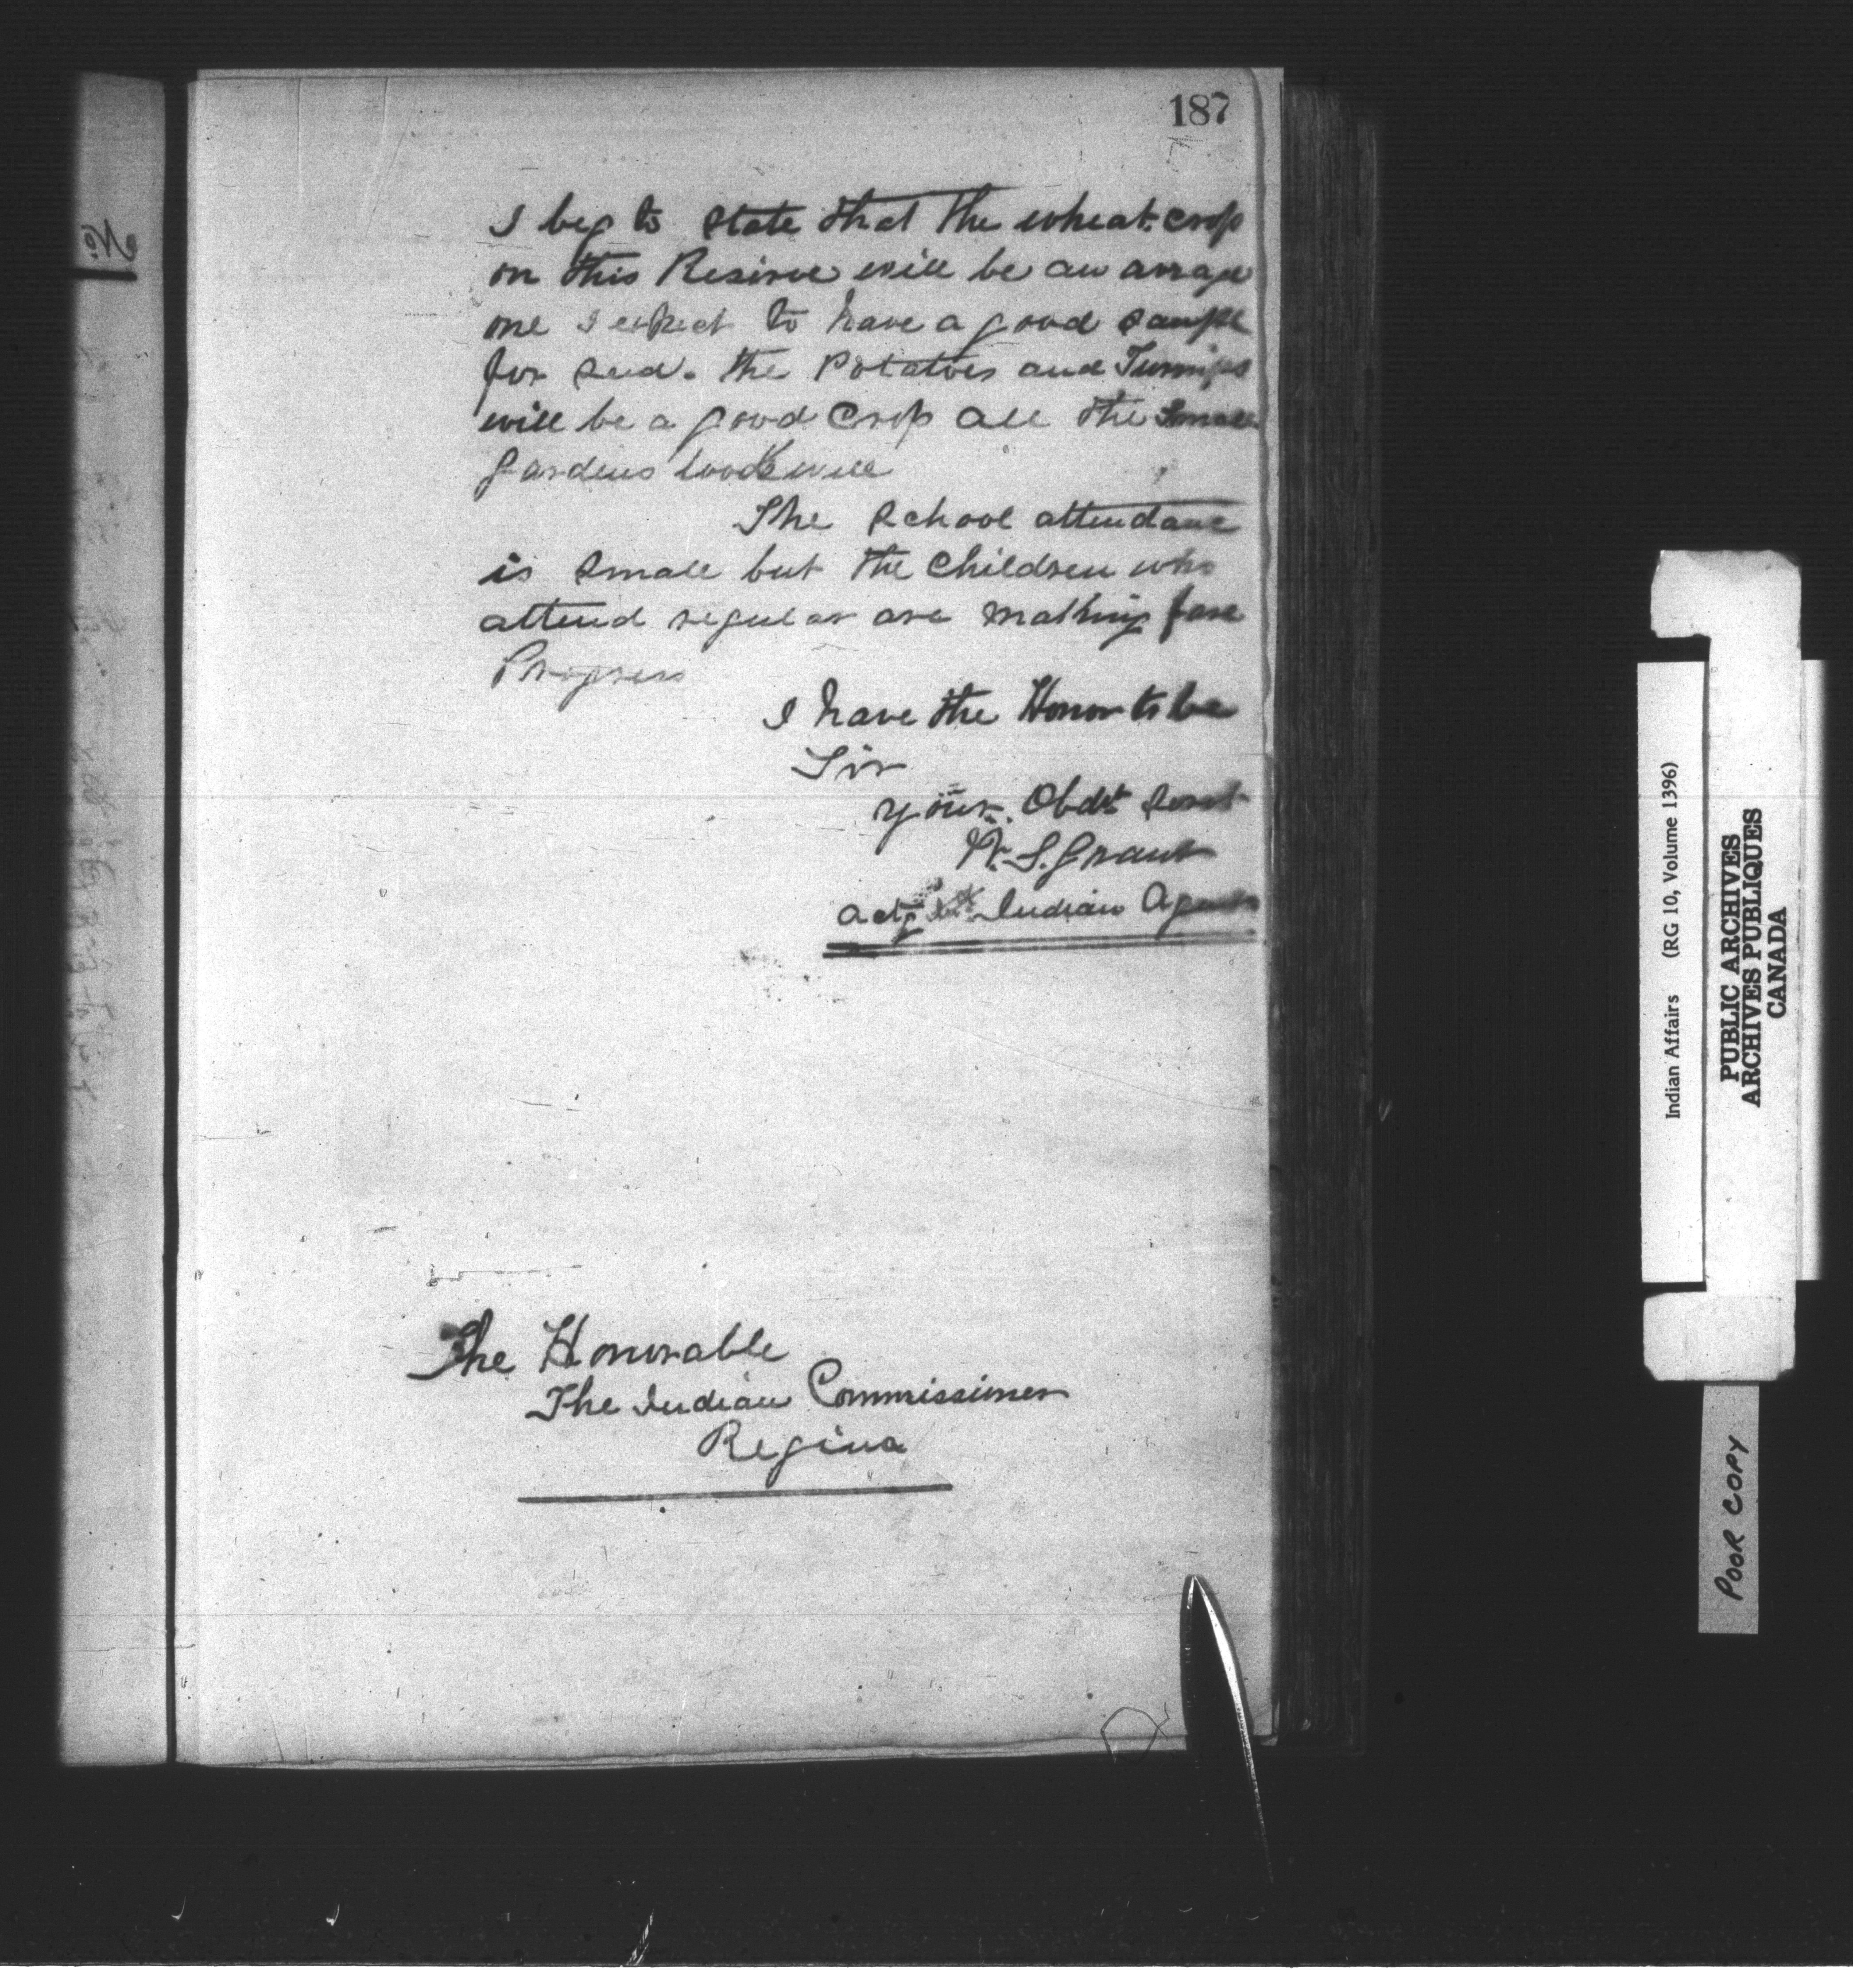 187
I beg to state that the wheat crop
on this Resirve will be an avrage
one I expect to have a good sample
for seed. the Potatoes and Turnips
will be a good Crop all the Small
gardens look well
The School attendance
is small but the Children who
attend regular are making fare
Progress
I have the Honor to be
Sir
your Obdt Servt
W. S. Grant
actg Indian Agent
The Honorable
The Indian Commissioner
Regina
No.
Indian Affairs (RG 10, Volume 1396)
PUBLIC ARCHIVES
ARCHIVES PUBLIQUES
CANADA
POOR COPY